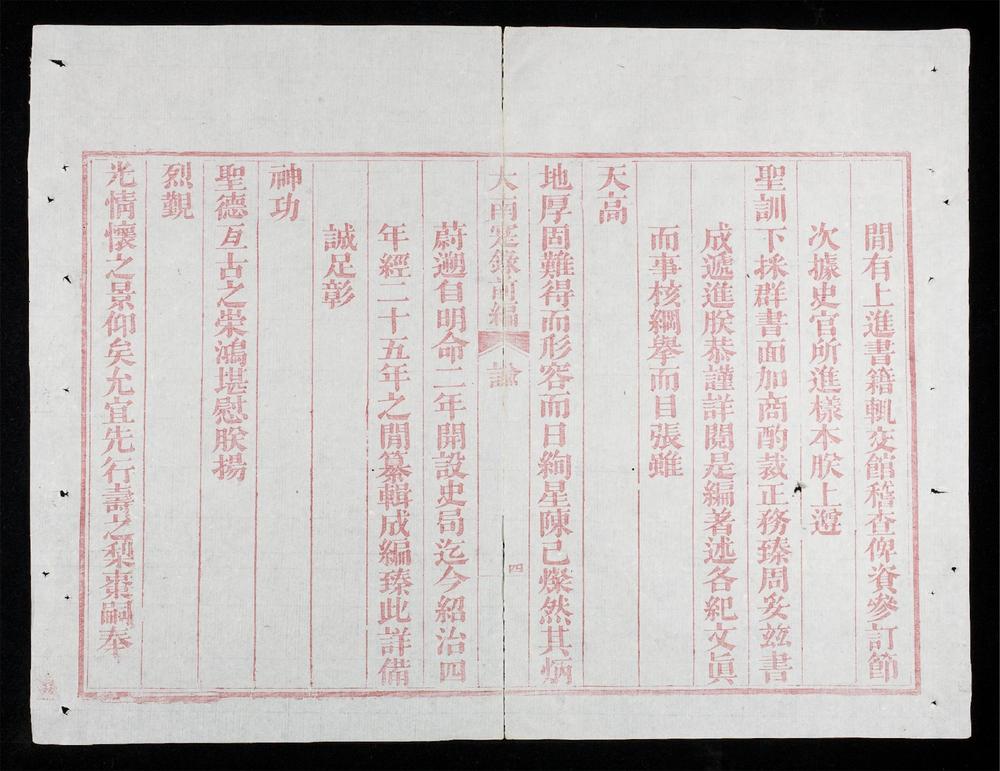 間有上進書籍輒交館稽查俾資參訂節
次據史官所進樣本朕上遵
聖訓下採群書面加商酌裁正務臻周妥玆書
成遞進朕恭謹詳閱是編著述各紀文眞
而事核綱舉而目張雖
天高
地厚固難得而形容而日絢星陳已燦然其炳
大南寔錄前編 諭 四
蔚遡自明命二年開設史局迄今紹治四
年經二十五年之閒纂輯成編臻此詳備
誠足彰
神功
聖德亙古之崇鴻堪慰朕揚
烈覲
光情懷之景仰矣允宜先行壽之梨棗嗣奉